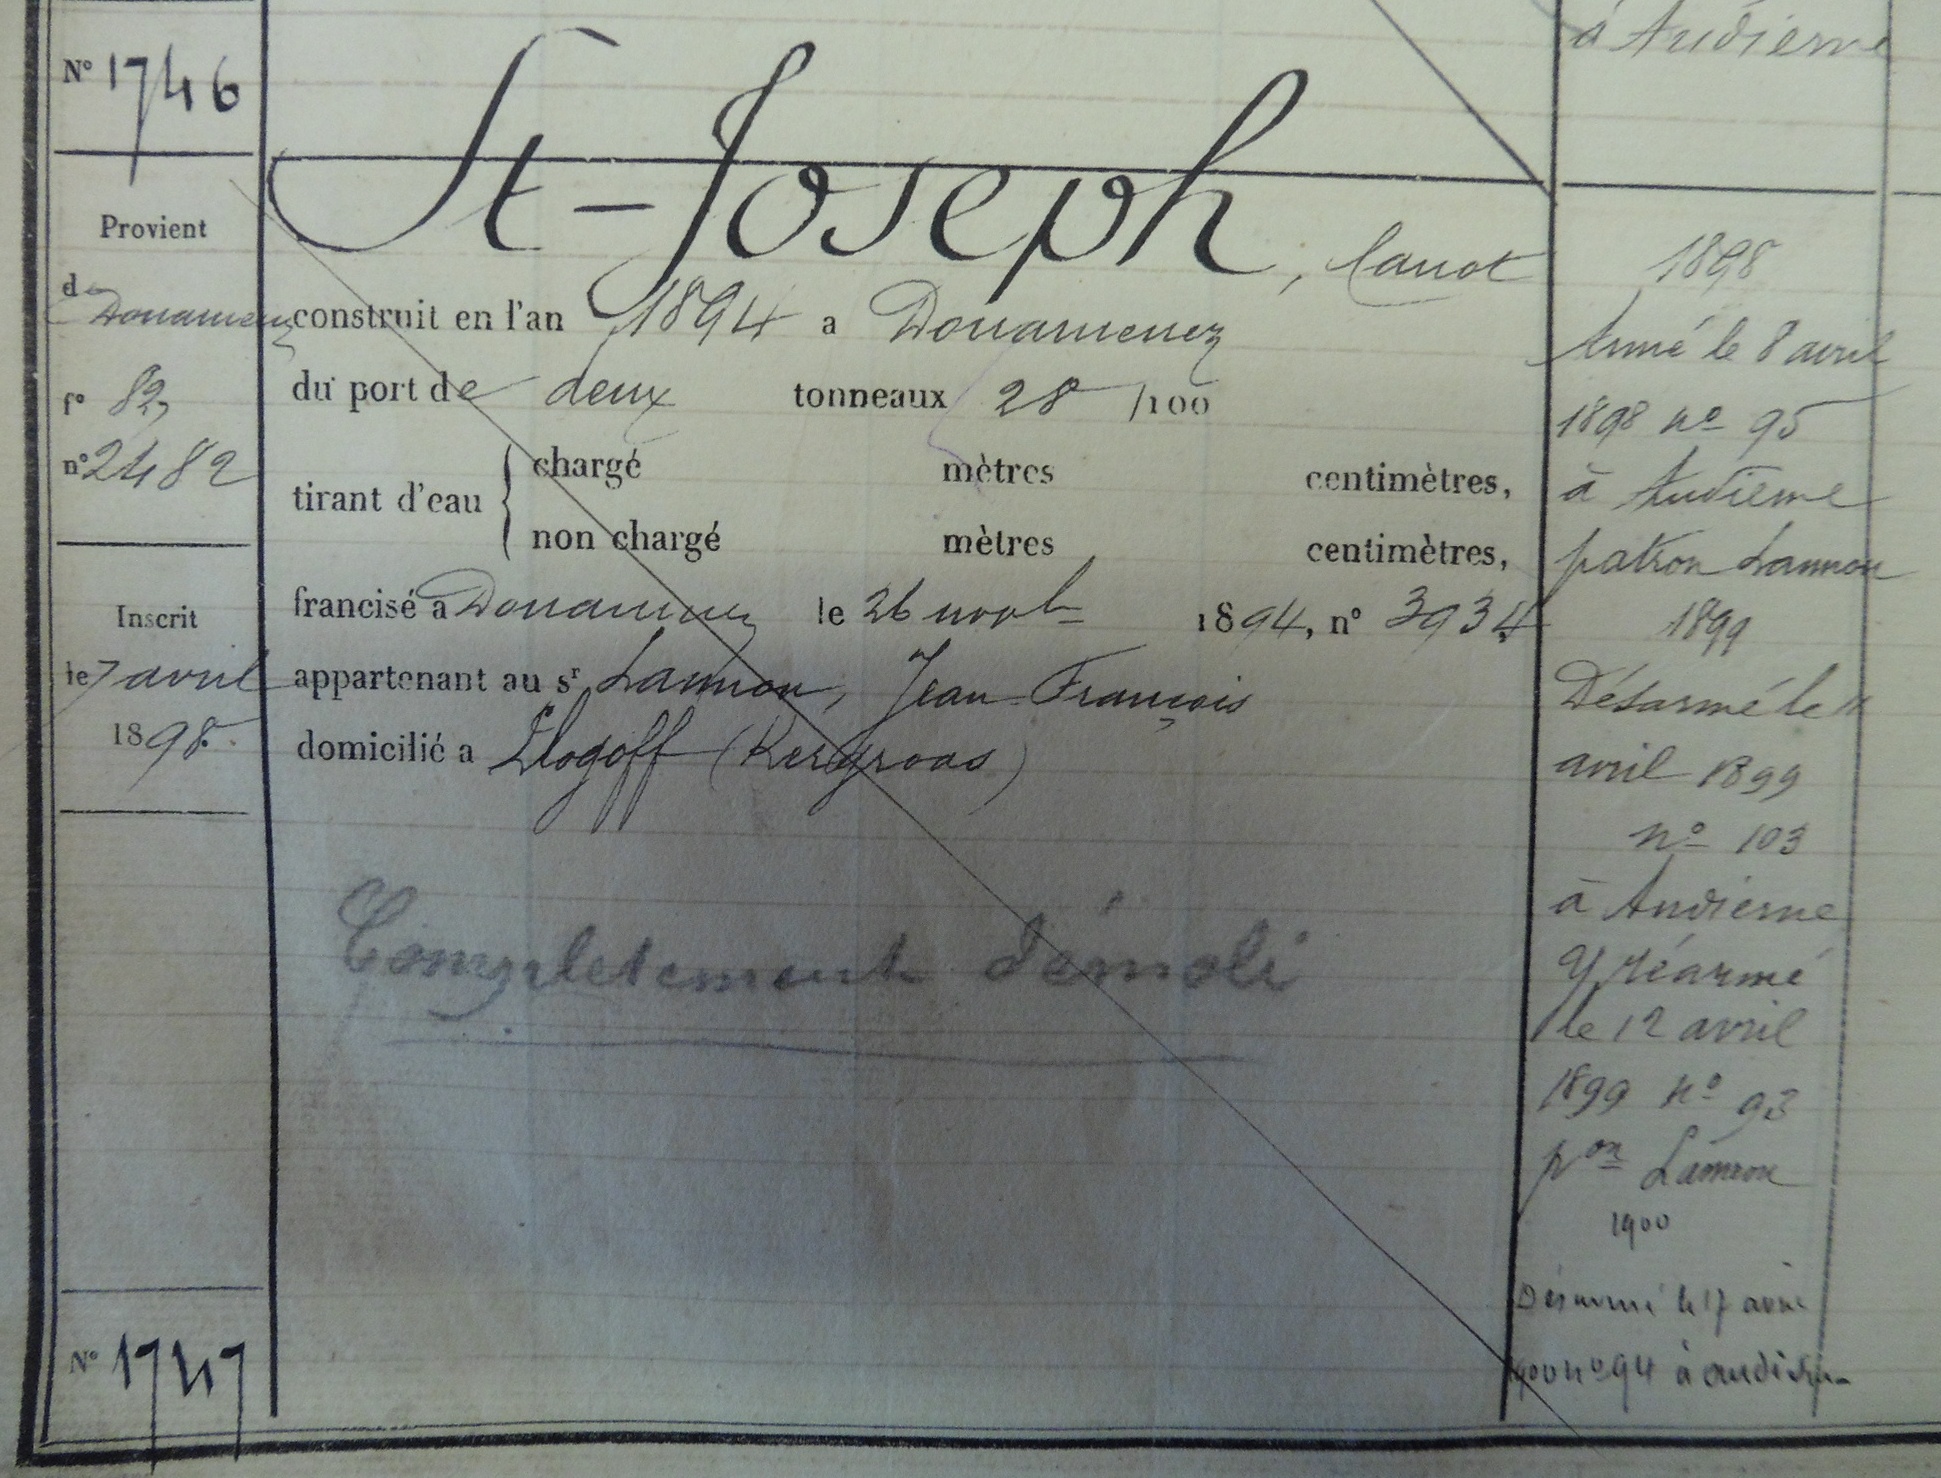 à Audierne
N° 1746
St-Joseph, Canot
Provient
de Douarnenez
f° 82,
n° 2482
Inscrit
le 7 avril
1898.
construit en l'an 1894 a Douarnenez
du port de deux tonneaux 28 /100
tirant d'eau { chargé mètres centimètres,
non chargé mètres centimètres,
francisé à Douarnenez le 26 novbre 1894, n° 3934
appartenant au sr Lannou, Jean-François
domicilié a Plogoff (Kergroas)
Complètement démoli
1898
Armé le 8 avril
1898 no 95
à Audierne
patron Lannou
1899
Désarmé le 11
avril 1899
no 103
à Audierne
Y réarmé
le 12 avril
1899 no 93
pon Lannou
1900
Désarmé le 17 avril
1900 no 94 à Audierne
N° 1747